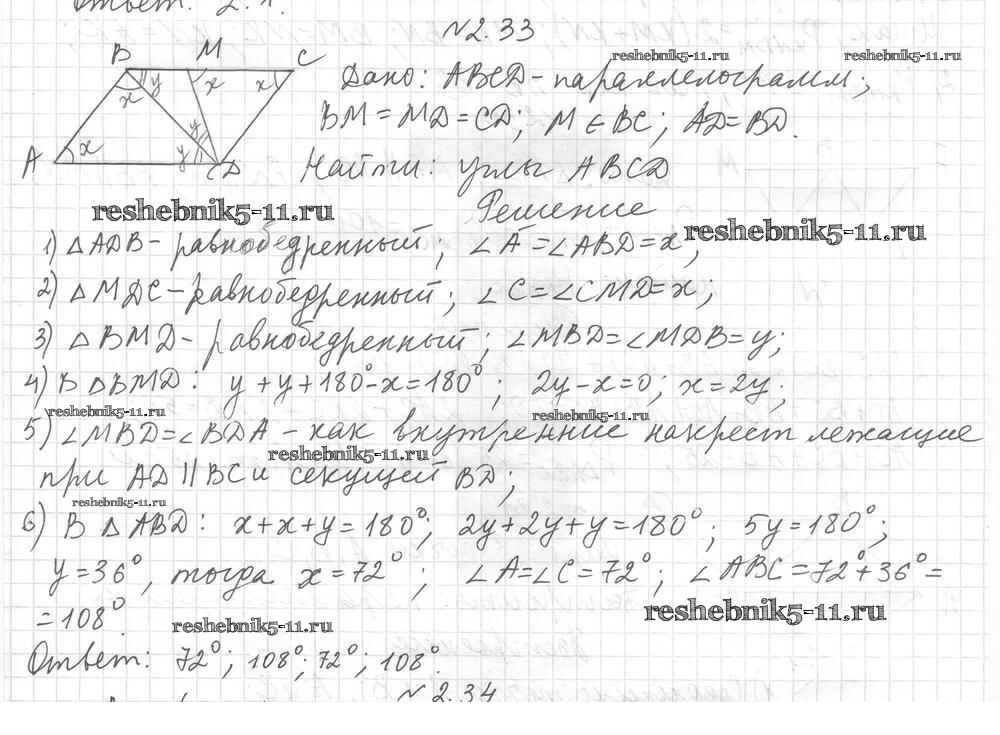 Ответ: 2.
№2.33
B M C
reshebnik5-11.ru reshebnik5-11.ru
Дано: ABCD - параллелограмм;
x y x x
BM = MD = CD; M ∈ BC; AD = BD.
y
A x y D
Найти: углы ABCD
reshebnik5-11.ru
Решение
reshebnik5-11.ru
1) △ADB - равнобедренный; ∠A = ∠ABD = x;
2) △MDC - равнобедренный; ∠C = ∠CMD = x;
3) △BMD - равнобедренный; ∠MBD = ∠MDB = y;
4) В △BMD: y + y + 180° - x = 180°; 2y - x = 0; x = 2y;
reshebnik5-11.ru reshebnik5-11.ru
5) ∠MBD = ∠BDA - как внутренние накрест лежащие
reshebnik5-11.ru
при AD || BC и секущей BD;
reshebnik5-11.ru
6) В △ABD: x + x + y = 180°; 2y + 2y + y = 180°; 5y = 180°;
y = 36°, тогда x = 72°; ∠A = ∠C = 72°; ∠ABC = 72° + 36° =
= 108°.
reshebnik5-11.ru
reshebnik5-11.ru
Ответ: 72°; 108°; 72°; 108°.
№2.34